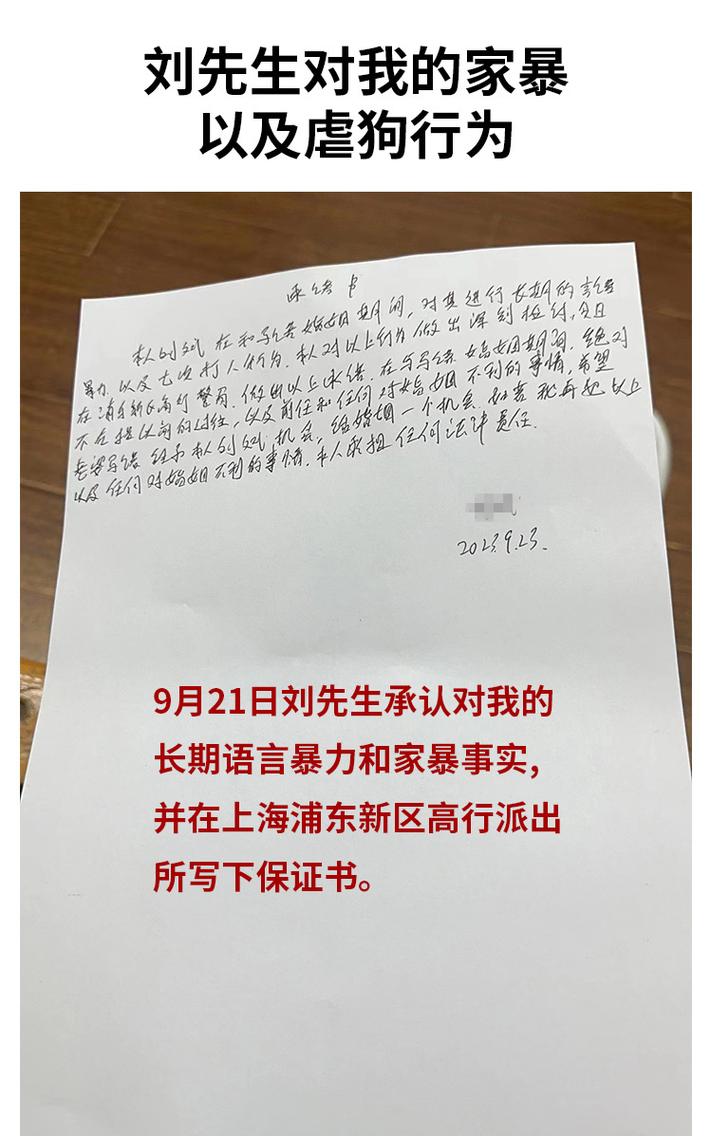 刘先生对我的家暴
以及虐狗行为
承诺书
本人刘斌 在和马 婚姻期间，对其进行长期的言语
暴力，以及七次打人行为。本人对以上行为做出深刻检讨，今日
在浦东新区高行警局，做出以上承诺。在与马 婚姻期间，绝对
不在提以前的过往，以及前任和任何对婚姻不利的事情，希望
老婆马 给予本人刘斌机会，给婚姻一个机会。如若我再犯以上
以及任何对婚姻不利的事情，本人承担任何法律责任。
2023.9.23.
9月21日刘先生承认对我的
长期语言暴力和家暴事实，
并在上海浦东新区高行派出
所写下保证书。